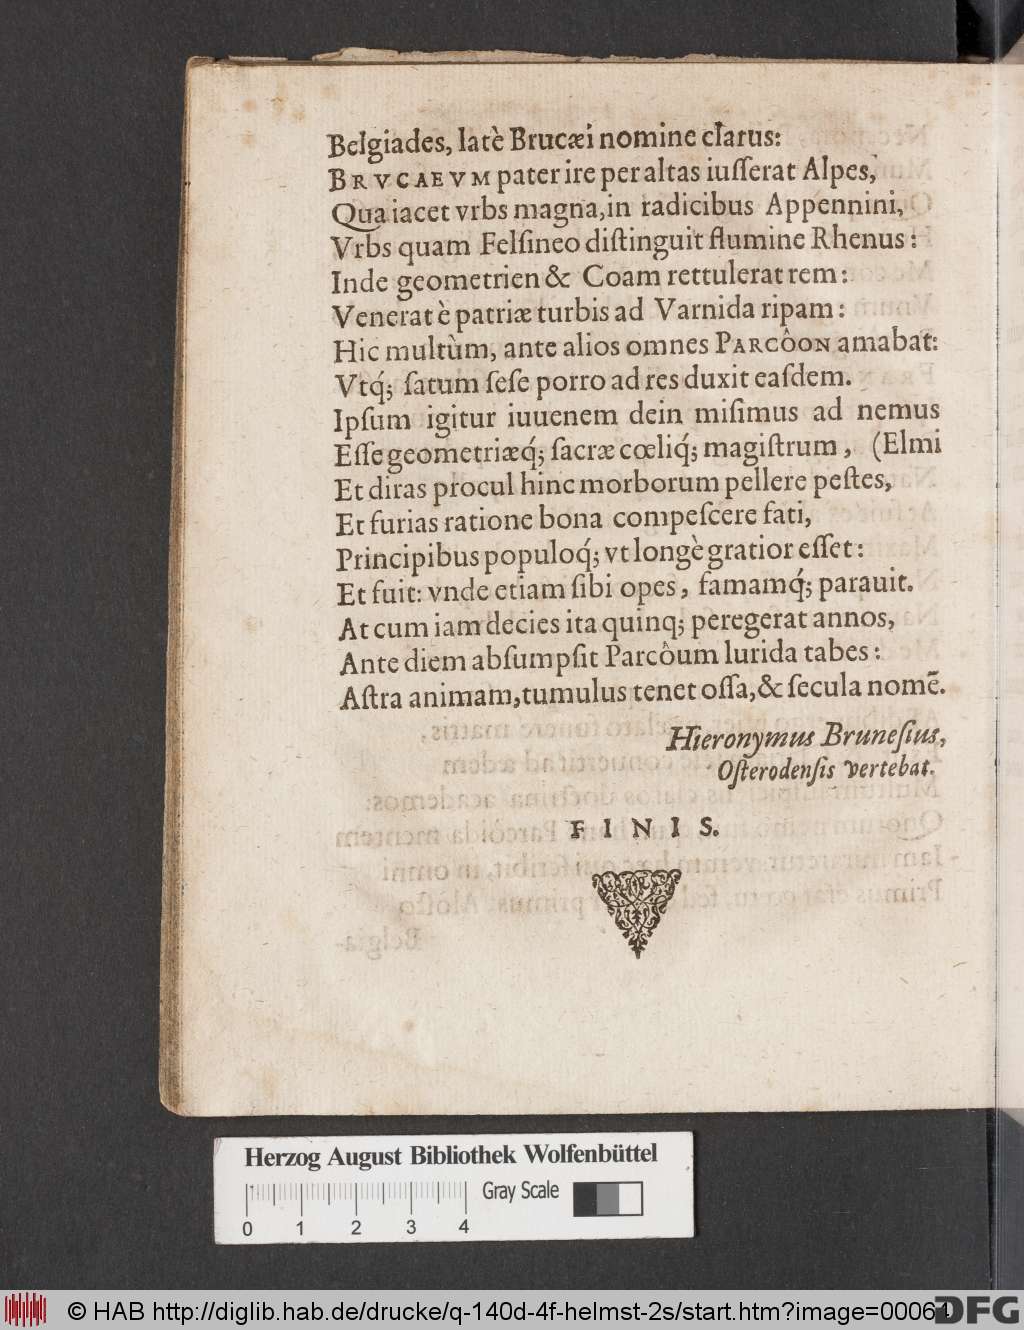 Belgiades, latè Brucæi nomine clarus:
BRVCAEVM pater ire per altas iuſſerat Alpes,
Qua iacet vrbs magna, in radicibus Appennini,
Vrbs quam Felſineo diſtinguit flumine Rhenus:
Inde geometrien & Coam rettulerat rem:
Venerat è patriæ turbis ad Varnida ripam:
Hic multùm, ante alios omnes PARCÔON amabat:
Vtq́; ſatum ſeſe porro ad res duxit eaſdem.
Ipſum igitur iuuenem dein miſimus ad nemus
Eſſe geometriæq́; ſacræ cœliq́; magiſtrum, (Elmi
Et diras procul hinc morborum pellere peſtes,
Et furias ratione bona compeſcere fati,
Principibus populoq́; vt longè gratior eſſet:
Et fuit: vnde etiam ſibi opes, famamq́; parauit.
At cum iam decies ita quinq; peregerat annos,
Ante diem abſumpſit Parcôum lurida tabes:
Aſtra animam, tumulus tenet oſſa, & ſecula nomē.
Hieronymus Bruneſius,
Oſterodenſis vertebat.
FINIS.
Herzog August Bibliothek Wolfenbüttel
Gray Scale
0 1 2 3 4
© HAB http://diglib.hab.de/drucke/q-140d-4f-helmst-2s/start.htm?image=00064
DFG